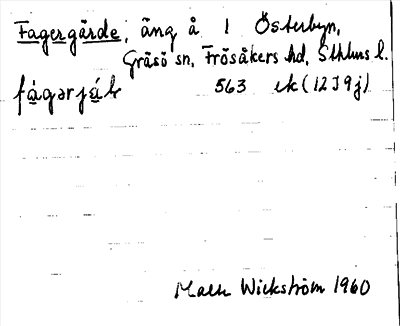 Fagergärde, äng å 1 Österbyn,
Gräsö sn, Frösåkers hd, Sthlms l.
563 ek (12J9j)
Wickström 1960